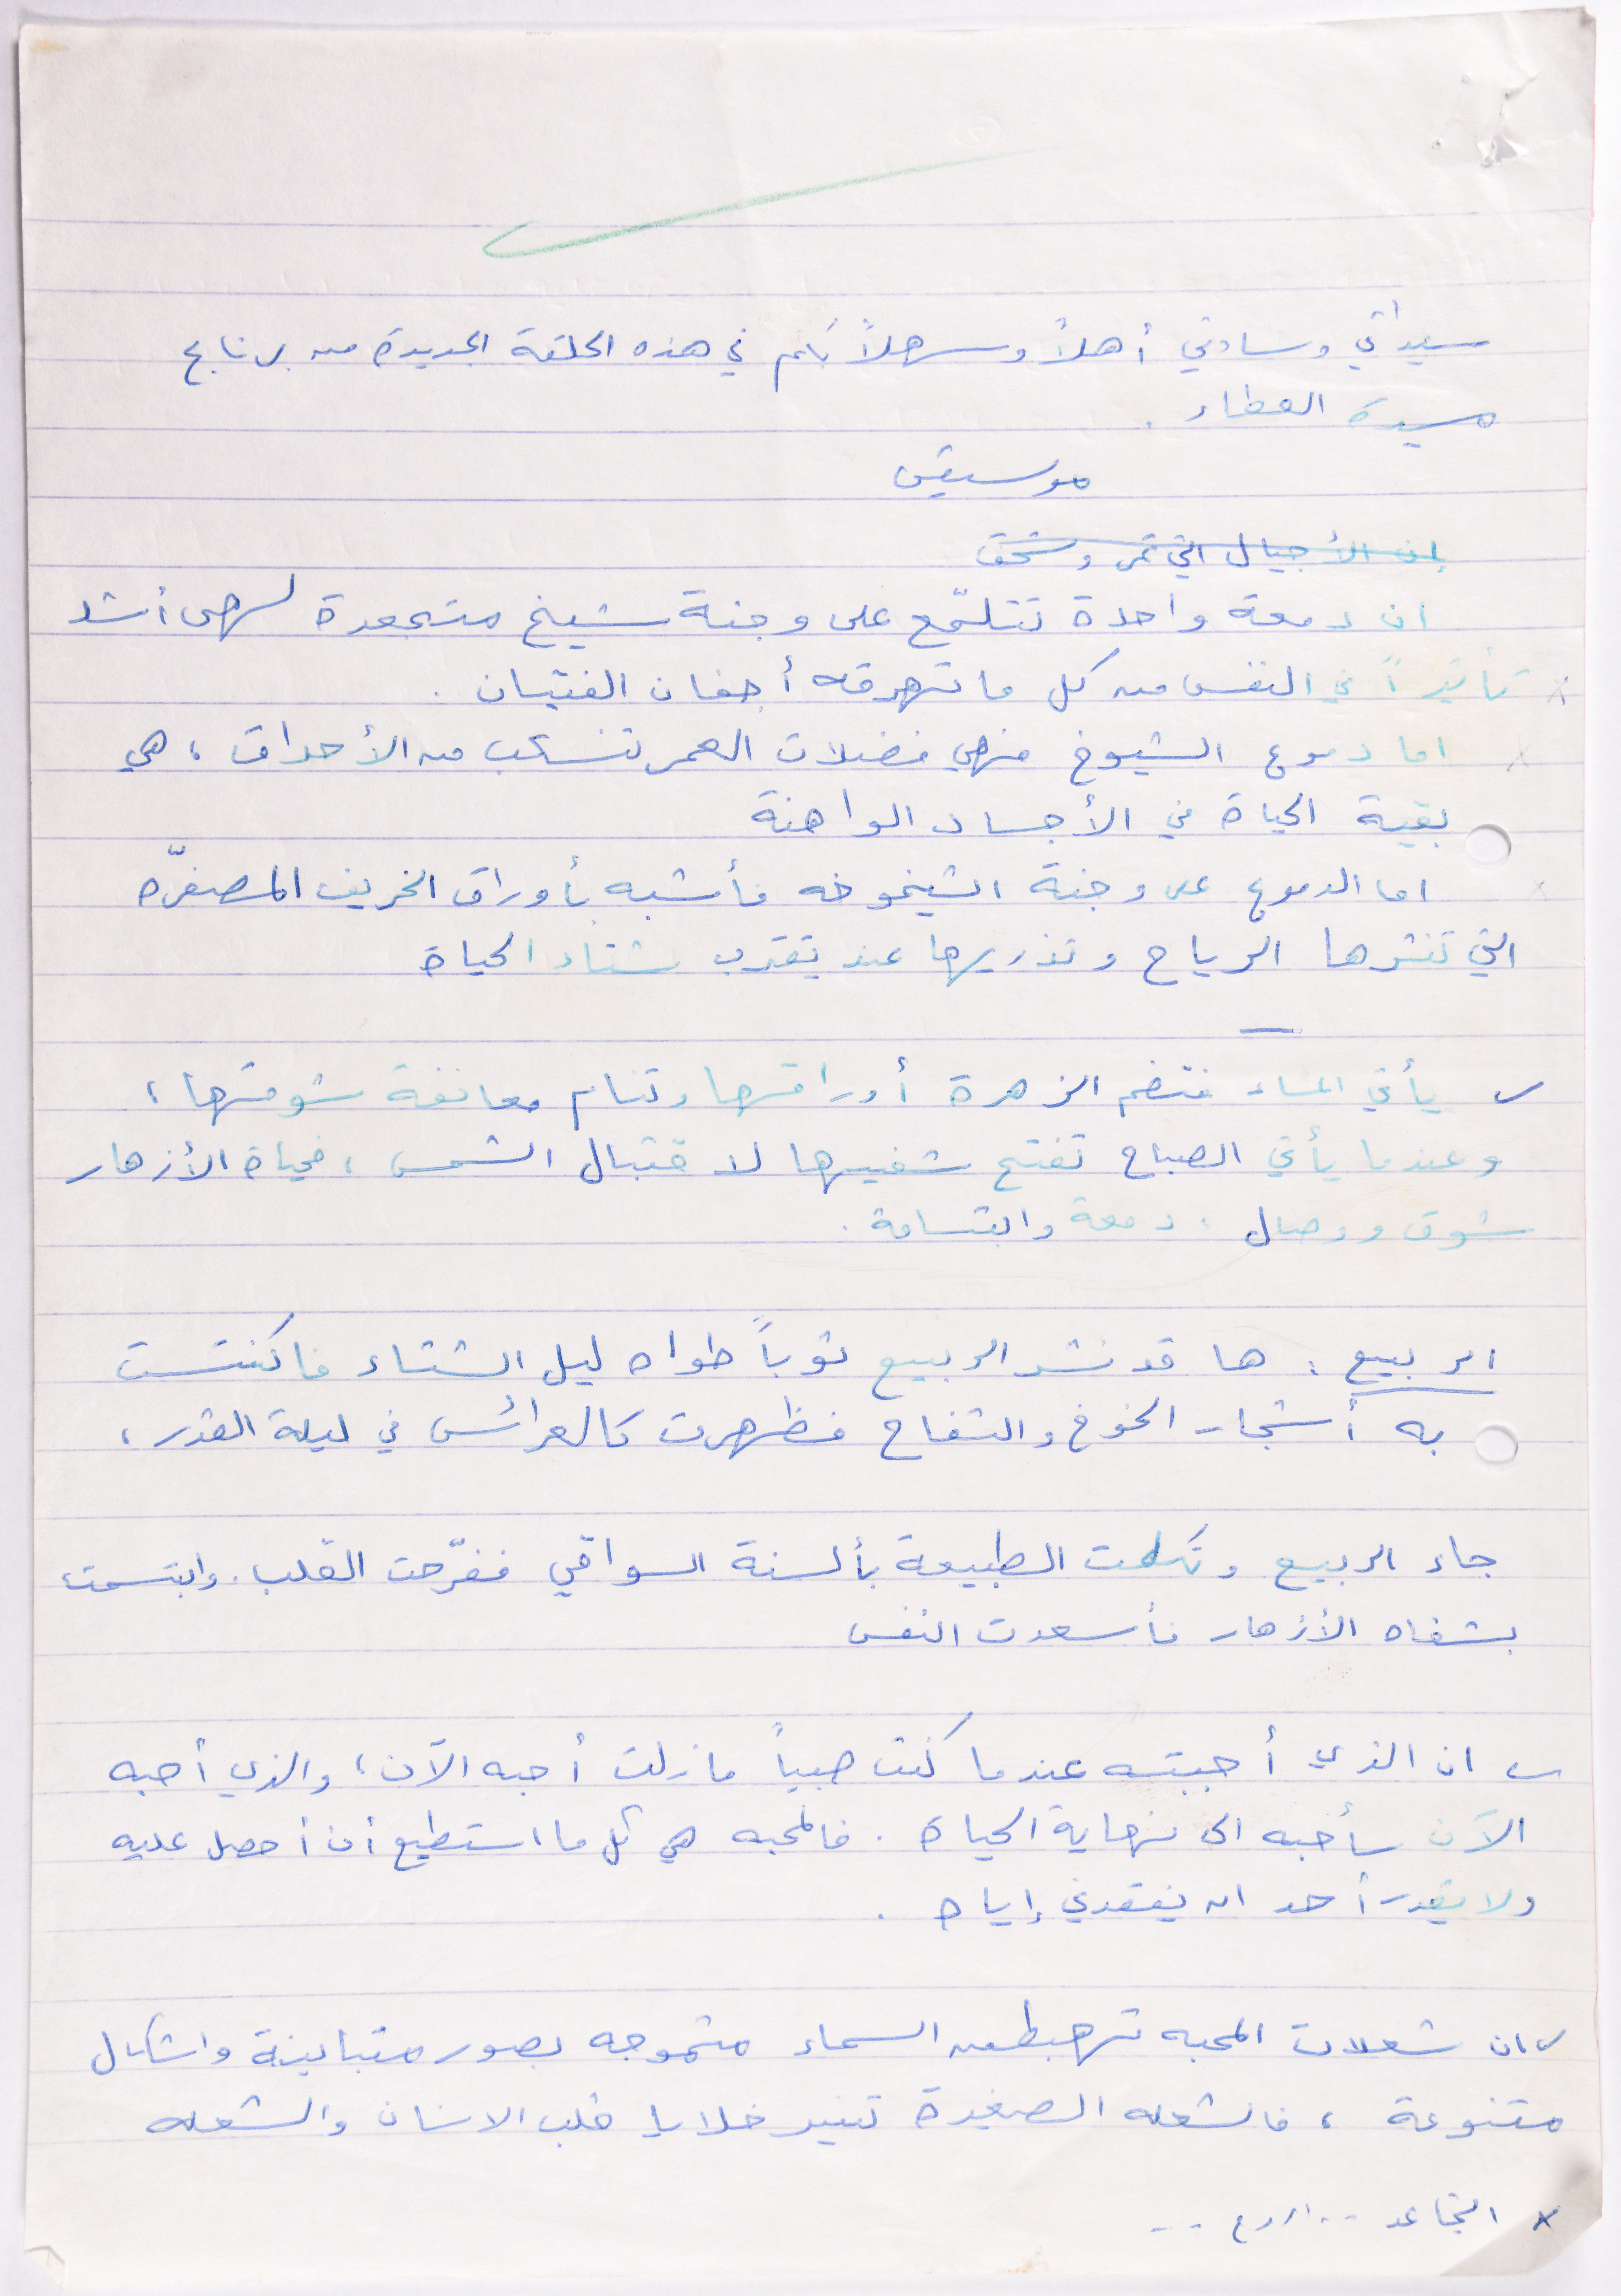 سيداتي وسادتي أهلاً وسهلاً بكم في هذه الحلقة الجديدة من برنامج
مسيرة العطاء .
موسيقى
إن الأجيال التي تمر وتسحق
ان دمعة واحدة تتلمّع على وجنة شيخ متجعدة لهي أشد
تأثيراً في النفس من كل ما تهرقه أجفان الفتيان .
اما دموع الشيوخ فهي فضلات العمر تنسكب من الأحداق ، هي
بقية الحياة في الأجساد الواهنة
اما الدموع على وجنة الشيخوخه فأشبه بأوراق الخريف المصفرّه
التي تنثرها الرياح وتذريها عند يقترب شتاء الحياة
يأتي المساء فتضم الزهرة أوراقها وتنام معانقة شوقها ،
وعندما يأتي الصباح تفتح شفتيها لاقتبال الشمس ، فحياة الأزهار
شوق ووصال . دمعة وابتسامة .
الربيع : ها قد نشر الربيع ثوباً طواه ليل الشتاء فاكتست
به أشجار الخوخ والتفاح فظهرت كالعرائس في ليلة القدر ،
جاء الربيع وتكلمت الطبيعة بألسنة السواقي ففرّحت القلب . وابتسمت
بشفاه الأزهار فأسعدت النفس
ان الذي أحببته عندما كنت صبياً مازلت أحبه الآن ، والذي أحبه
الآن سأحبه الى نهاية الحياة . فالمحبه هي كل ما استطيع أن أحصل عليه
ولا يقدر أحد ان يفقدني إياه .
ان شعلات المحبه تهبط من السماء متموجه بصور متباينة واشكال
متنوعة ، فالشعله الصغيرة تنير خلايا قلب الانسان والشعله
x التجاعد ..